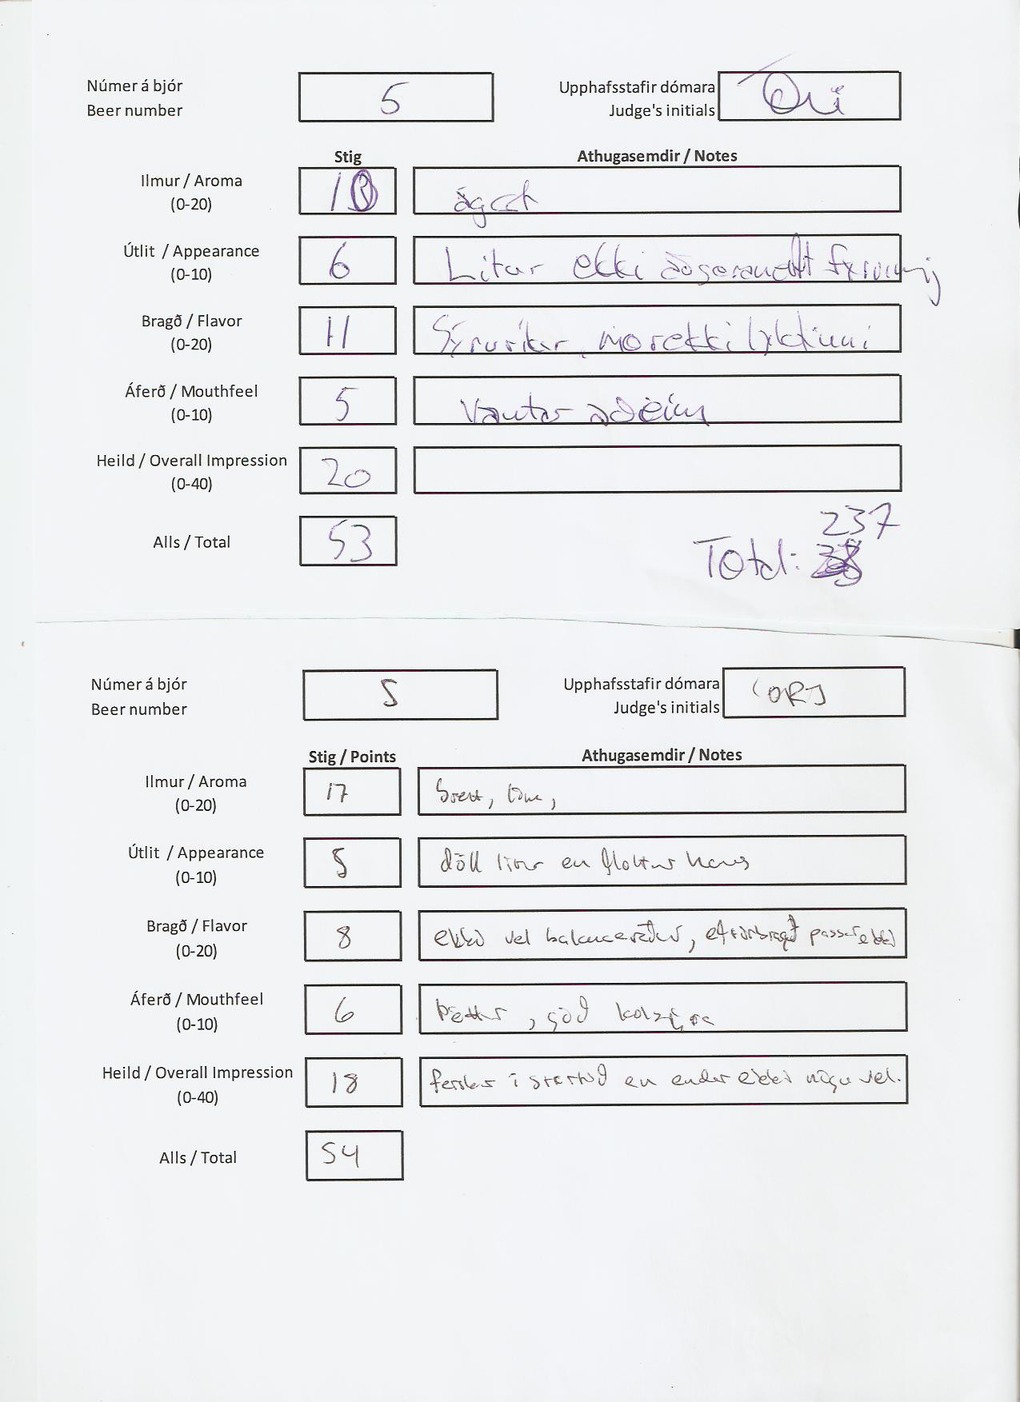 Númer á bjór 5 Upphafsstafir dómara
Beer number Judge's initials
Stig Athugasemdir / Notes
Ilmur / Aroma ágætt
(0-20)
Útlit / Appearance 6 Litur ekki
(0-10)
Bragð / Flavor 11
(0-20)
Áferð / Mouthfeel 5 Vantar aðeins
(0-10)
Heild / Overall Impression 20
(0-40)
Alls / Total 53
237
Total:
Númer á bjór 5 Upphafsstafir dómara
Beer number Judge's initials ORJ
Stig / Points Athugasemdir / Notes
Ilmur / Aroma 17
(0-20)
Útlit / Appearance 5 döll en flottur haus
(0-10)
Bragð / Flavor 8 ekki vel balanceraður, eftirbragð passar ekki
(0-20)
Áferð / Mouthfeel 6 Þéttur, góð kolsýra
(0-10)
Heild / Overall Impression 18 ferskur í startið en endar ekki nógu vel.
(0-40)
Alls / Total 54